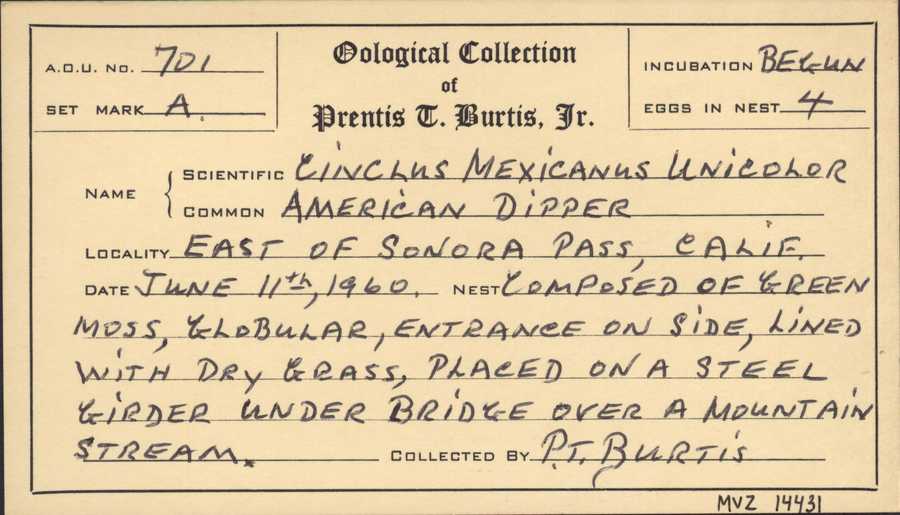 A.O.U. No. 701
Set Mark A.
Oological Collection
of
Prentis T. Burtis, Jr.
Incubation Begun
Eggs in Nest 4
Name
Scientific Cinclus Mexicanus Unicolor
Common American Dipper
Locality East of Sonora Pass, Calif.
Date June 11th, 1960. Nest Composed of Green
Moss, Globular, Entrance on Side, Lined
With Dry Grass, Placed on a Steel
Girder Under Bridge over a Mountain
Stream. Collected by P.T. Burtis
MVZ 14431